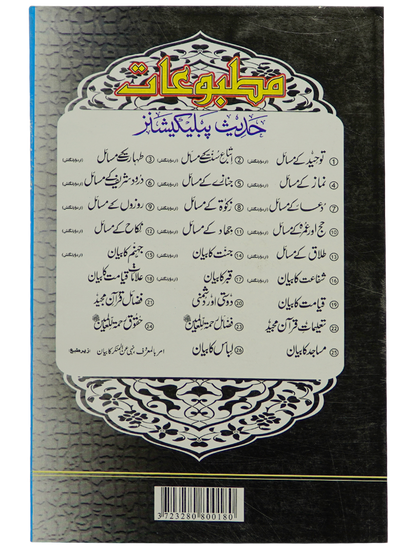 مطبوعات
حدیث پبلیکیشنز
① توحید کے مسائل (اردو، انگلش) ② اتباع سنت کے مسائل (اردو، انگلش) ③ طہارت کے مسائل (اردو، انگلش)
④ نماز کے مسائل (اردو، انگلش) ⑤ جنازے کے مسائل (اردو، انگلش) ⑥ درود شریف کے مسائل (اردو، انگلش)
⑦ دعا کے مسائل (اردو، انگلش) ⑧ زکوٰۃ کے مسائل (اردو، انگلش) ⑨ روزوں کے مسائل (اردو، انگلش)
⑩ حج اور عمرہ کے مسائل (اردو، انگلش) ⑪ جہاد کے مسائل (اردو، انگلش) ⑫ نکاح کے مسائل (اردو، انگلش)
⑬ طلاق کے مسائل (اردو، انگلش) ⑭ جنت کا بیان (اردو، انگلش) ⑮ جہنم کا بیان (اردو، انگلش)
⑯ شفاعت کا بیان (اردو، انگلش) ⑰ قبر کا بیان (اردو، انگلش) ⑱ علامات قیامت کا بیان
⑲ قیامت کا بیان ⑳ دوستی اور دشمنی ㉑ فضائل قرآن مجید
㉒ تعلیمات قرآن مجید ㉓ فضائل رحمۃ للعالمین ﷺ ㉔ حقوق رحمۃ للعالمین ﷺ
㉕ مساجد کا بیان ㉖ لباس کا بیان امر بالمعروف نہی عن المنکر کا بیان زیر طبع
3 723280 800180